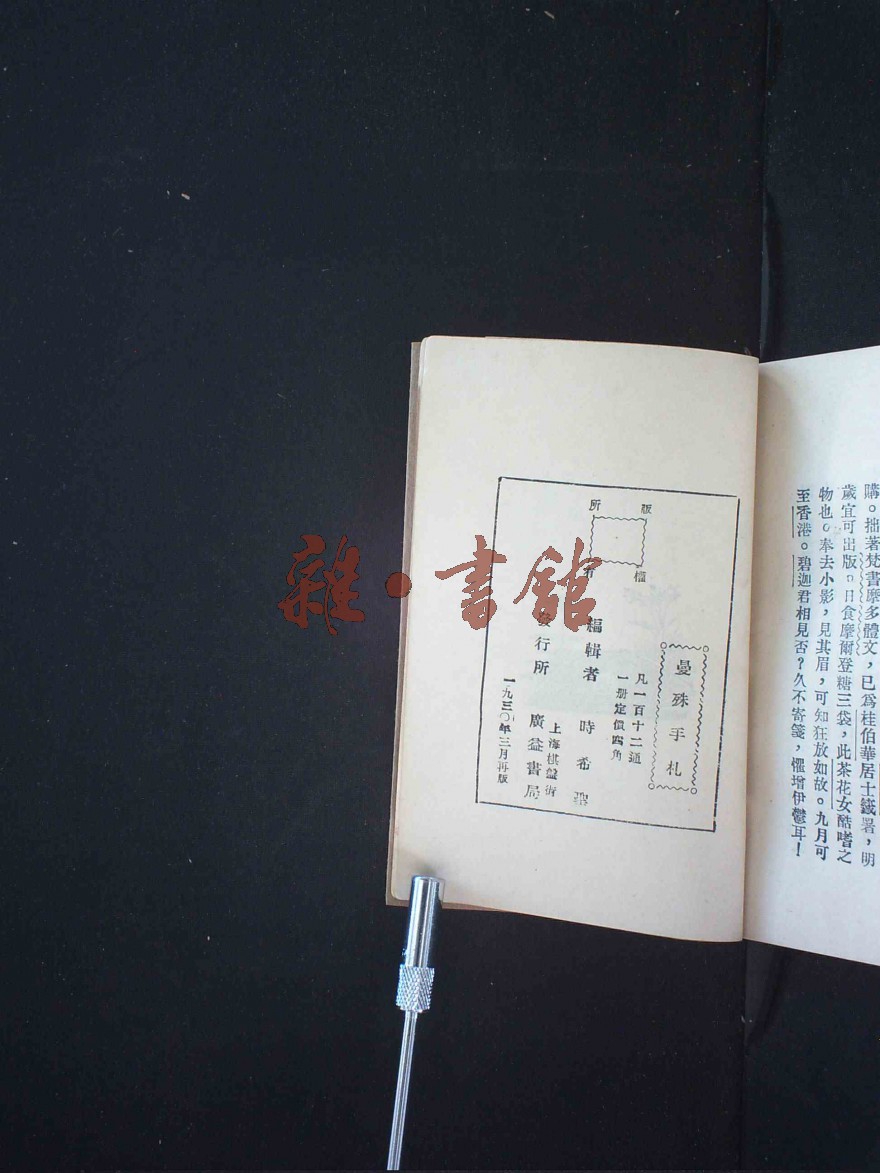 購。拙著梵書摩多體文，已爲桂伯華居士籤署，明
歲宜可出版。日食摩爾登糖三袋，此茶花女酷嗜之
物也。奉去小影，見其眉，可知狂放如故。九月可
至香港。碧迦君相見否？久不寄箋，懼增伊鬱耳！
曼殊手札
凡一百十二通
一册定價四角
版權所有
編輯者 時希聖
發行所 上海棋盤街 廣益書局
一九三〇年三月再版
雜·書館